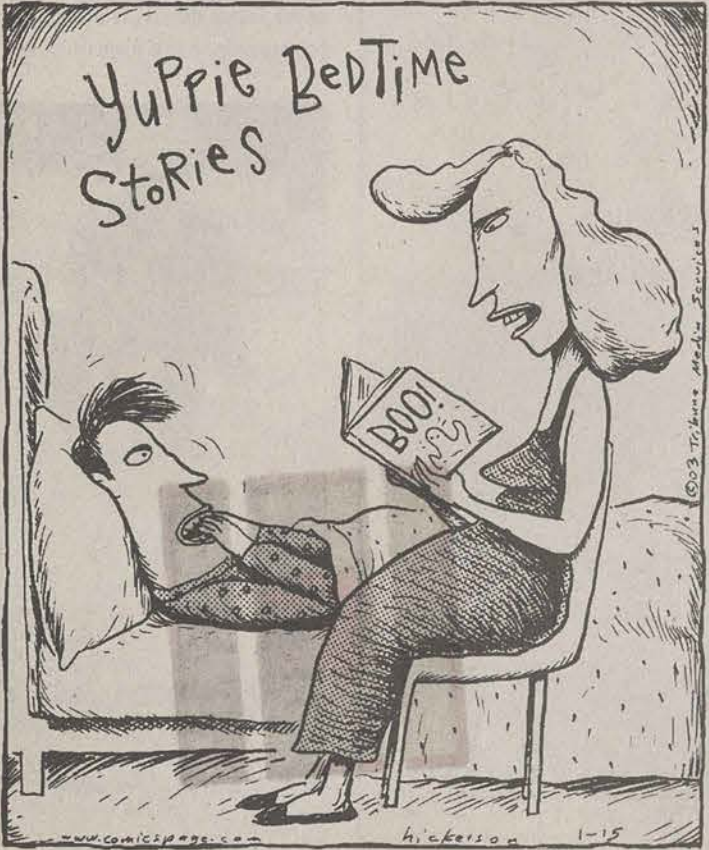 YuPPie BeDTiMe
SToRieS
BOO!
©03 Tribune Media Services
www.comicspage.com
hickerson
1-15